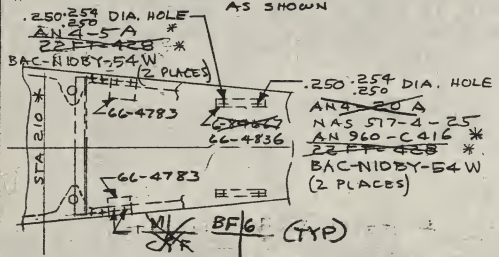 AS SHOWN
.250 .254 .250 DIA. HOLE
AN 4-5 A
22 FT-428 *
BAC-N10BY-54 W
(2 PLACES)
66-4783
STA 210 *
.250 .254 .250 DIA. HOLE
AN4-20 A
NAS 517-4-25
AN 960-C416 *
22 FT-428 *
BAC-N10BY-54 W
(2 PLACES)
66-4836
66-4783
BF 6 (TYP)